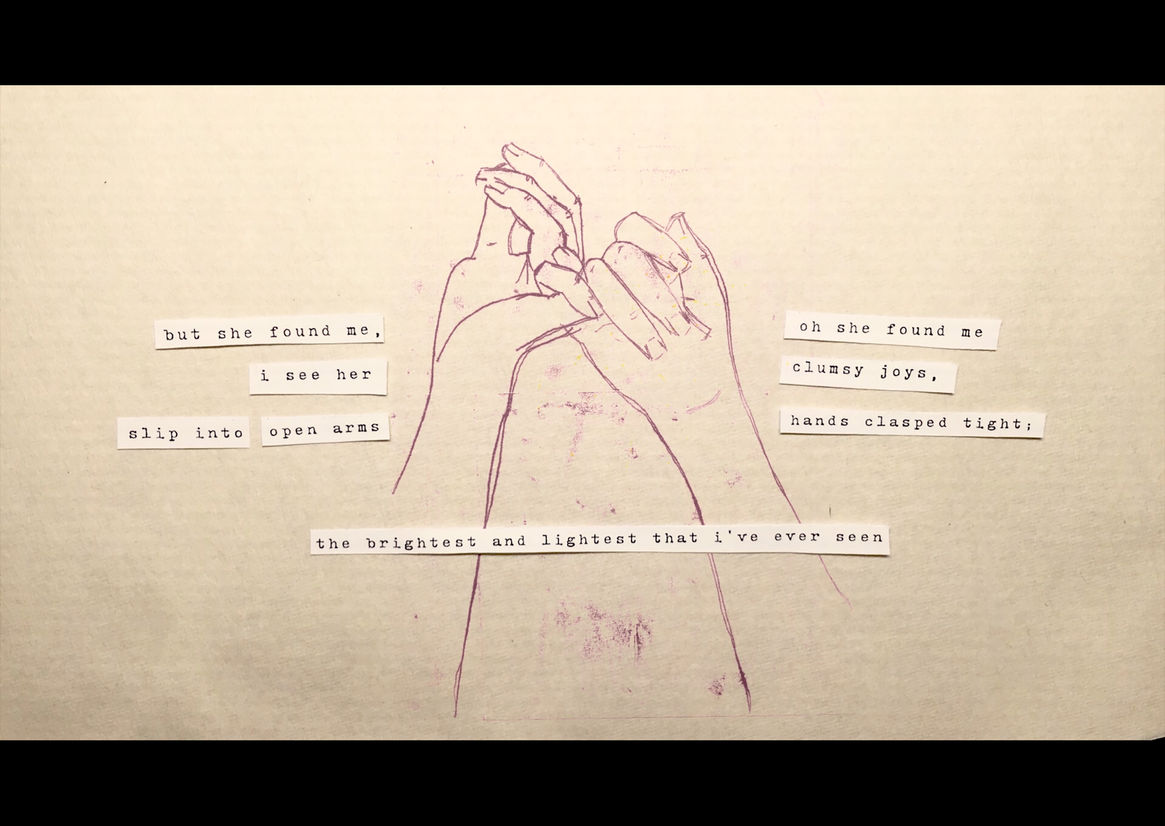 but she found me,
i see her
slip into open arms
oh she found me
clumsy joys,
hands clasped tight;
the brightest and lightest that i've ever seen